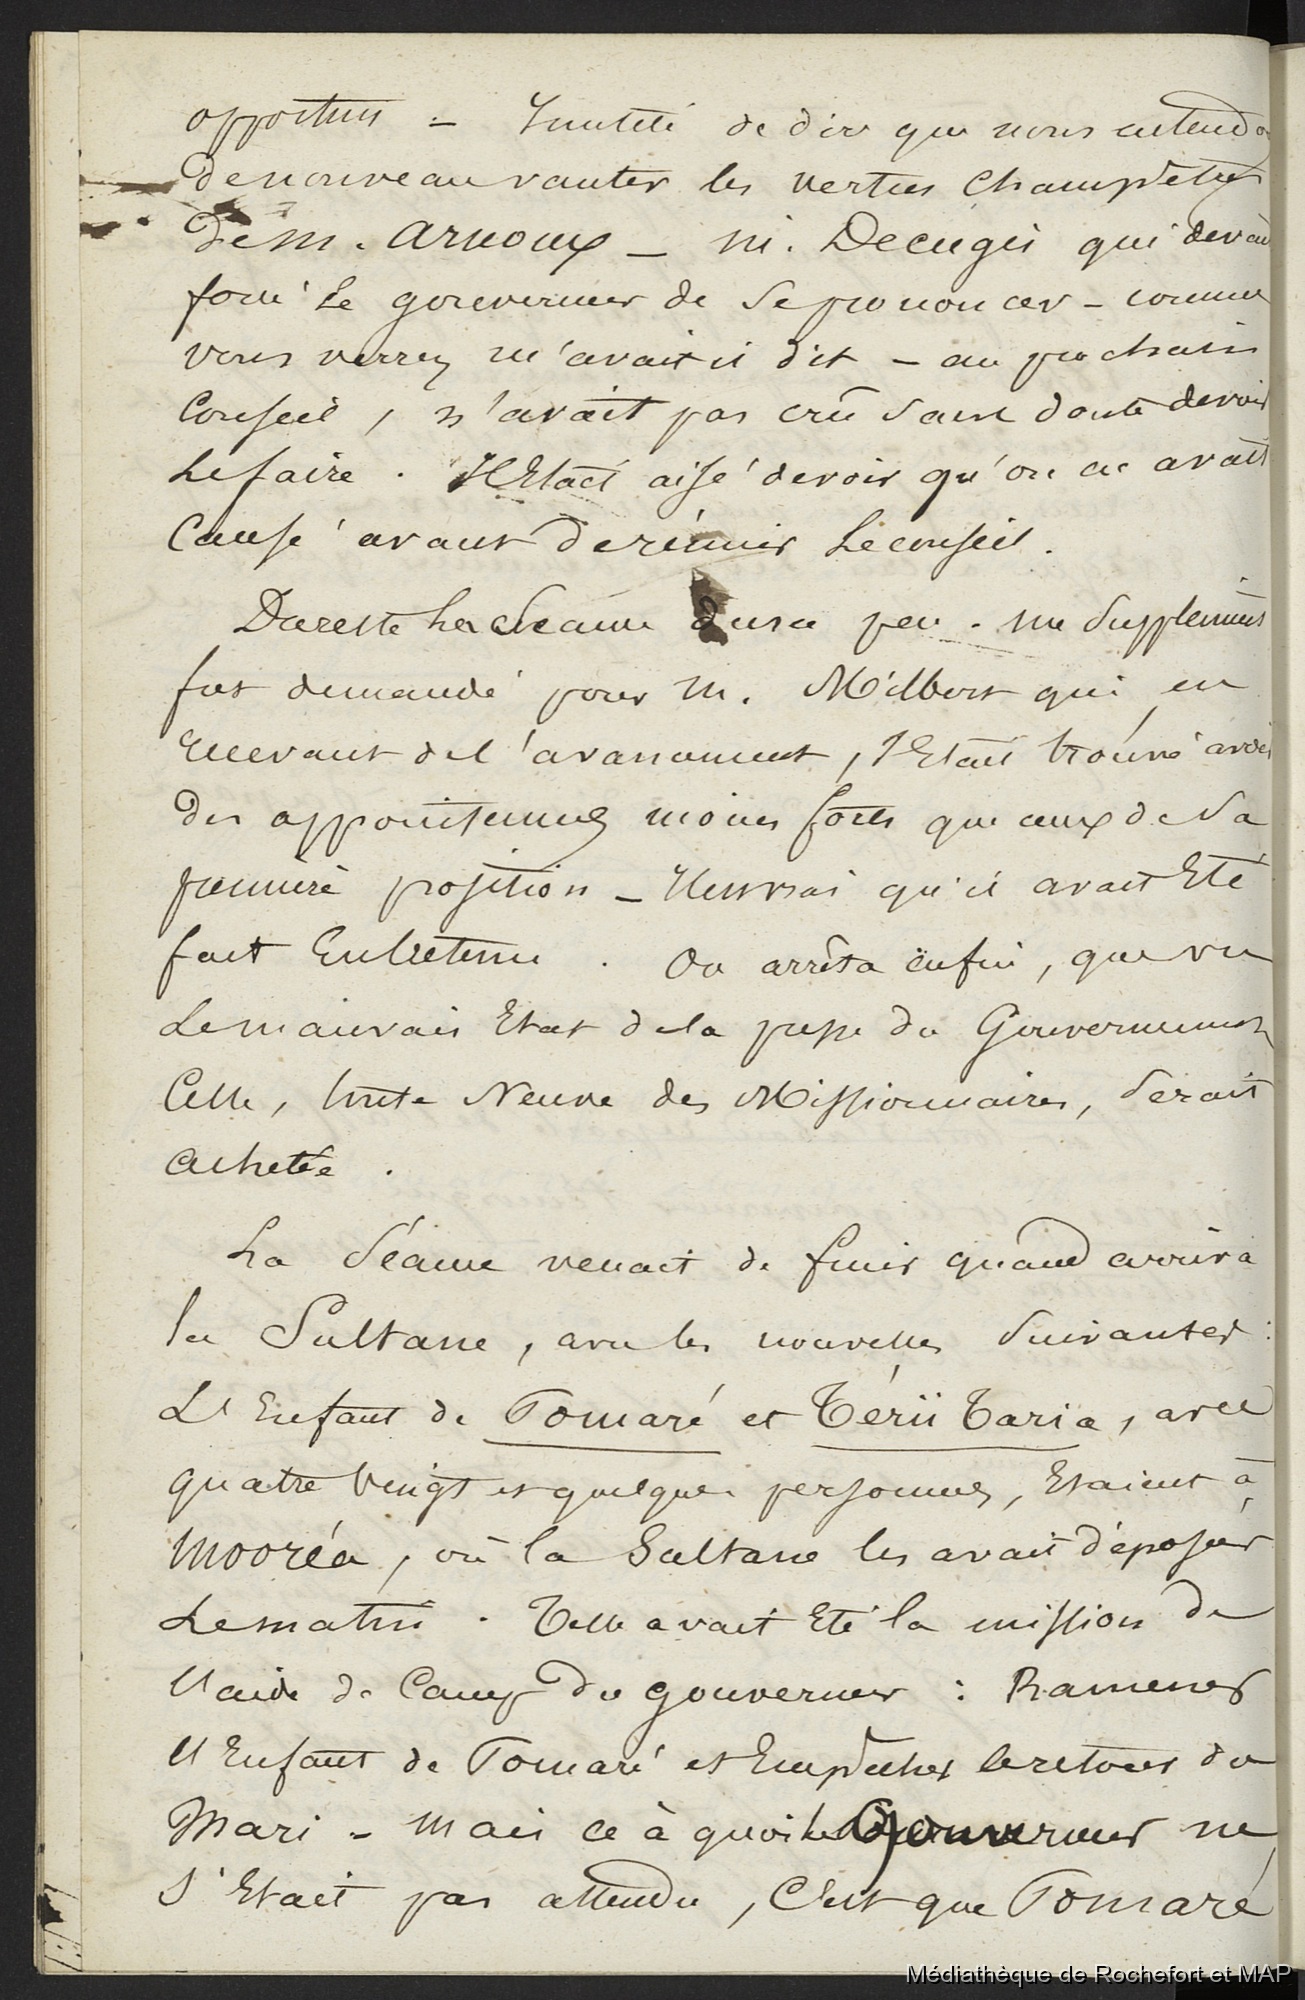 opportun = Inutile de dire que nous entendo
de nouveau vanter les vertus champêtres
de M. Arnoux _ M. Decugis qui devait
forcé le gouverneur de se prononcer _ comme
vous verrez m'avait il dit _ au prochain
Conseil, n'avait pas crû sans doute devoir
le faire. Il Etait aisé de voir qu'on en avait
Causé avant de réunir le conseil.
Du reste la séance dura peu. un Supplément
fut demandé pour M. Milbert qui en
recevant de l'avancement, s'Etait trouvé avoir
des appointemens moins forts que ceux de sa
première position _ Il est vrai qu'il avait Eté
fait . On arrêta enfin, que vu
le mauvais Etat de la presse du Gouvernement
Celle, toute Neuve des Missionnaires, serait
achetée.
La Séance venait de finir quand arriva
la Sultane, avec les nouvelles Suivantes :
L'Enfant de Pomaré et Térii Taria, avec
quatre vingt et quelques personnes, Etaient à
Mooréa, où la Sultane les avait déposés
le matin. Telle avait Eté la mission de
l'aide de Camp du gouverneur : Ramener
l'Enfant de Pomaré et Empêcher le retour du
Mari _ Mais ce à quoi le Gouverneur ne
s'Etait pas attendu, c'est que Pomaré
Médiathèque de Rochefort et MAP